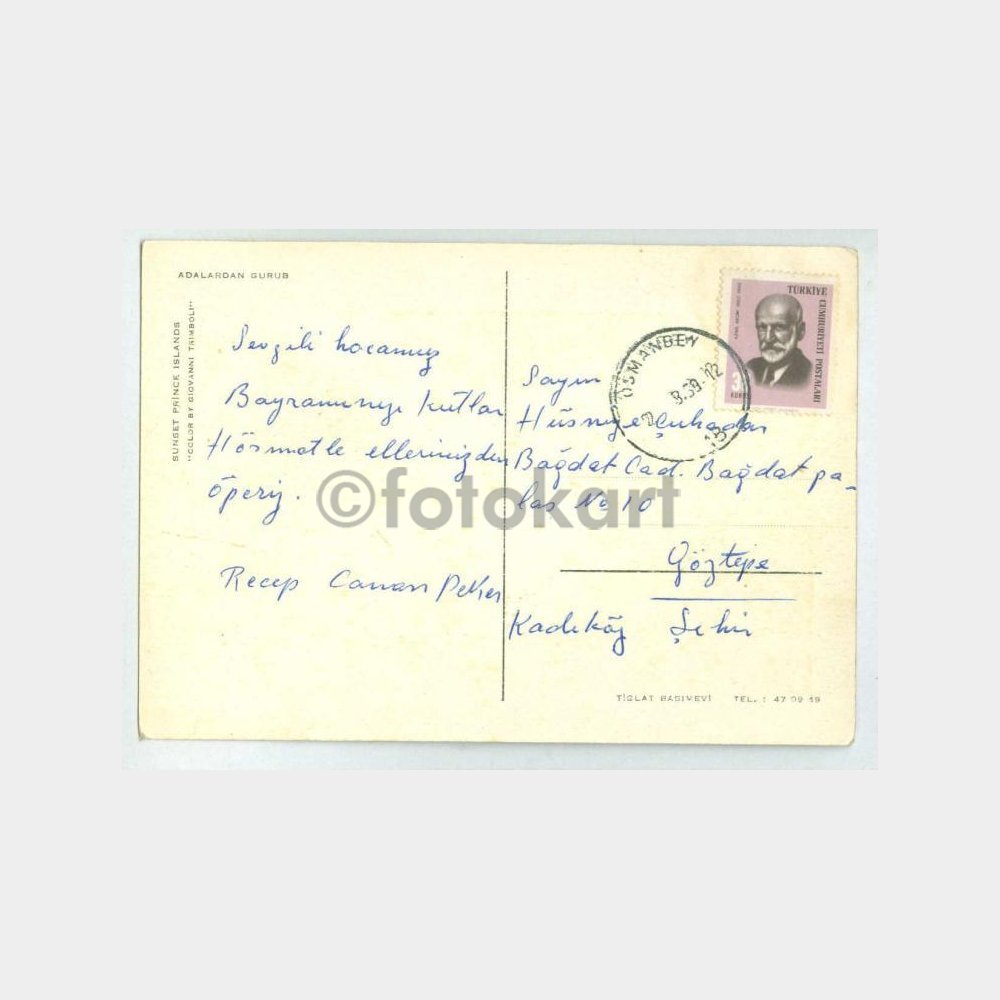 ADALARDAN GURUB
SUNSET PRINCE ISLANDS
"COLOR BY GIOVANNI TRIMBOLI"
Sevgili hocamız
Bayramınızı kutlar
Hörmatle ellerinizden
öperiz.
Recep Canan Peker
TÜRKİYE CUMHURİYETİ POSTALARI
OSMANBEY
Sayın
Hüsniye Çuhadar
Bağdat Cad. Bağdat pa-
las No 10
Göztepe
Kadıköy Şehir
TİGLAT BASIMEVİ TEL. : 47 09 49
©fotokart